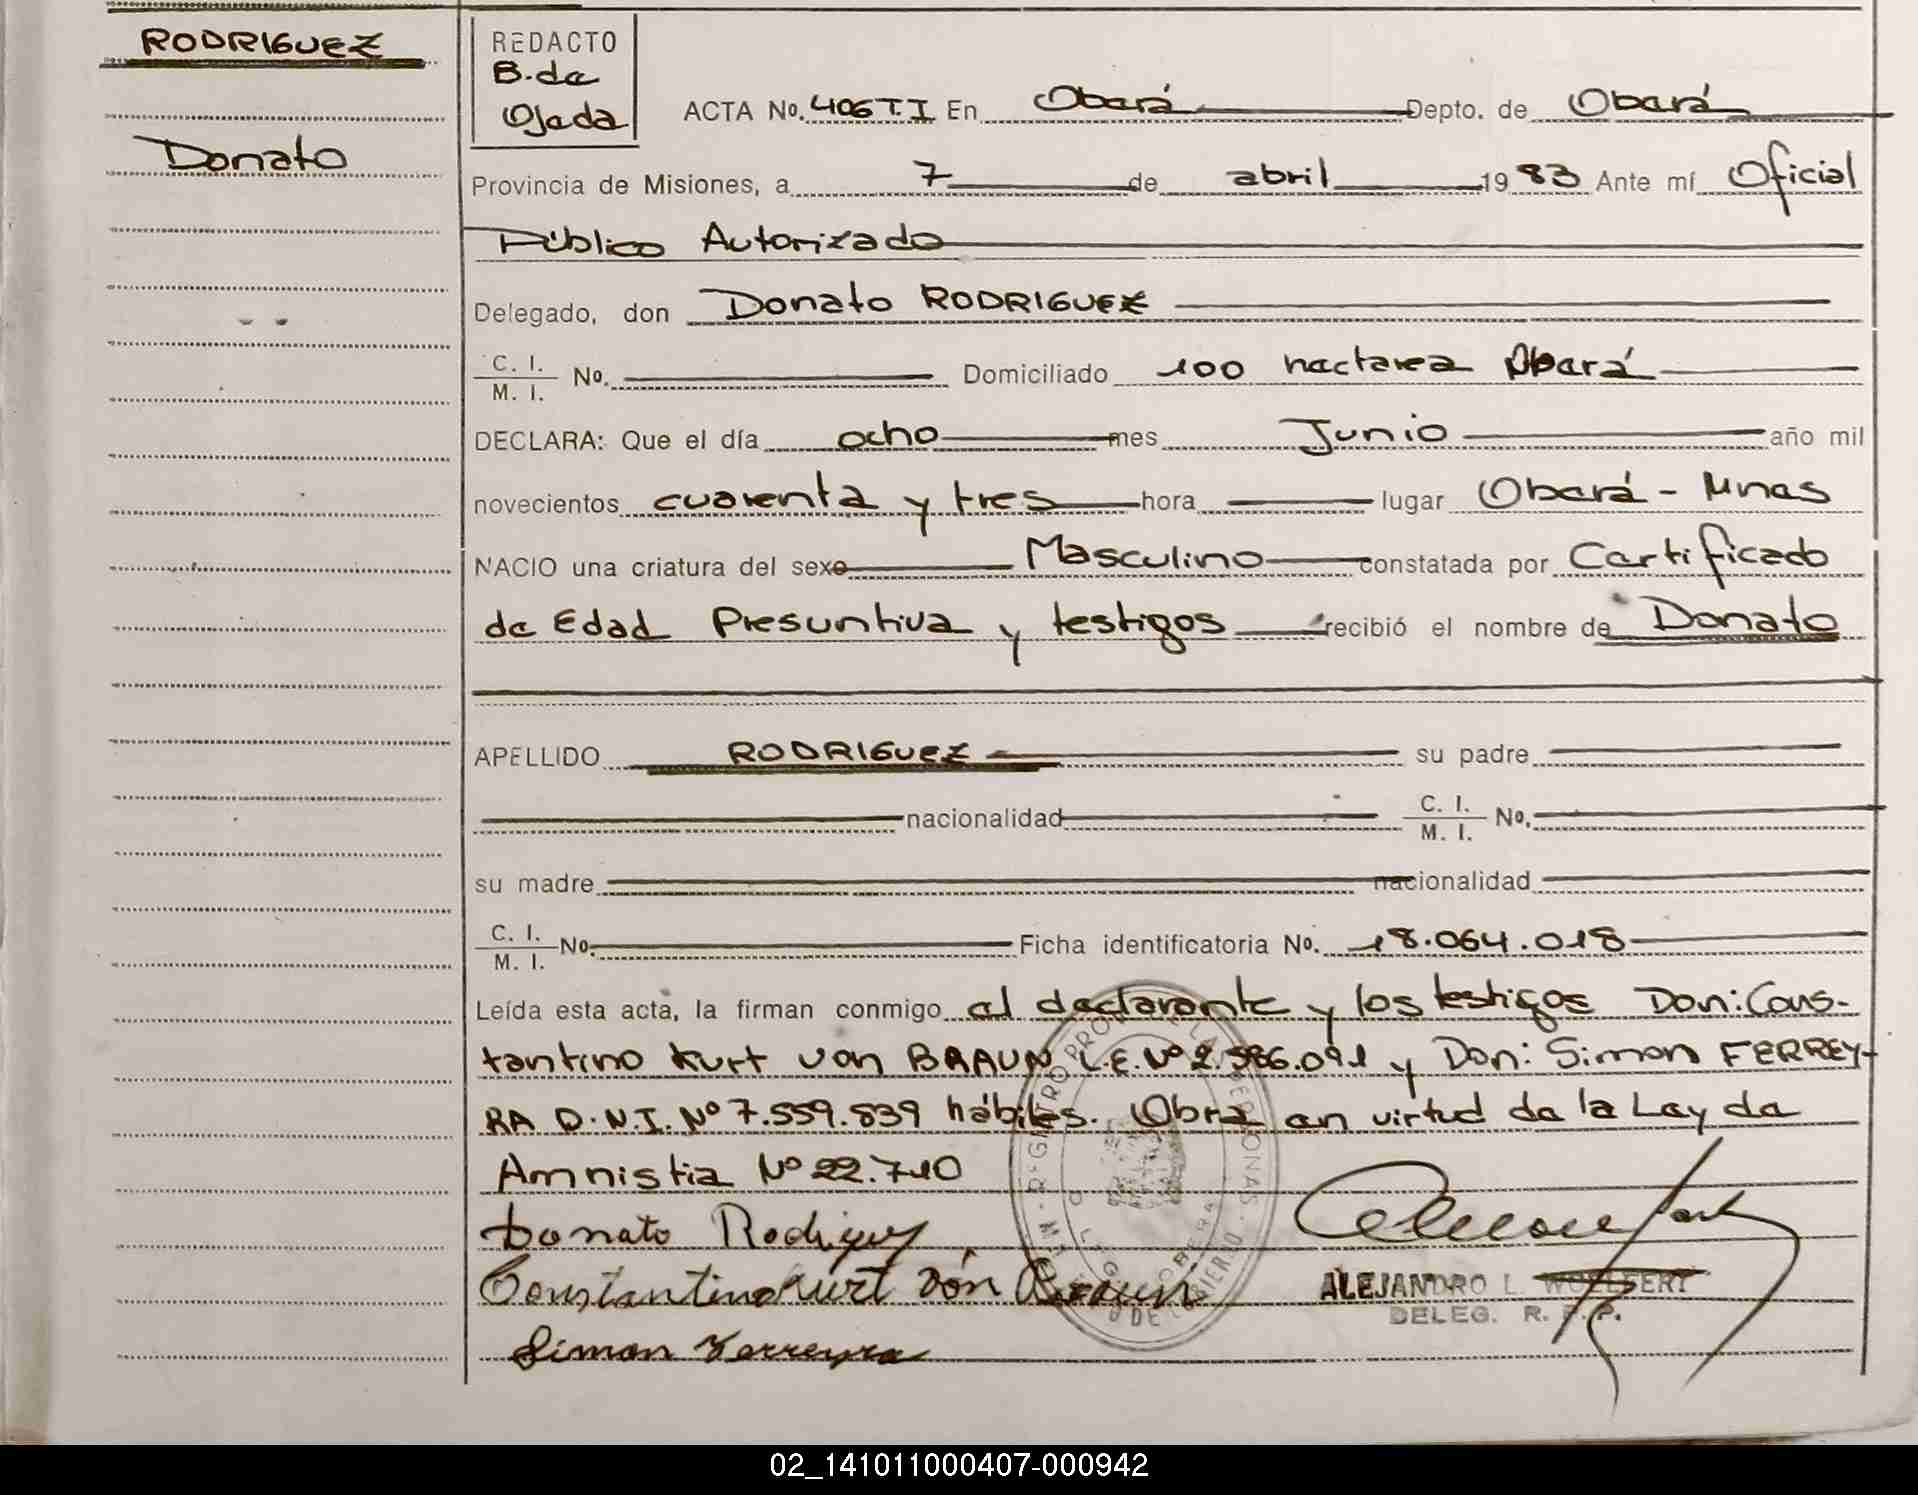 RODRIGUEZ
Donato
REDACTO
B. de
Ojeda
ACTA No. 406 T. I En Oberá Depto. de Oberá
Provincia de Misiones, a 7 de abril 1983 Ante mí Oficial
Público Autorizado
Delegado, don Donato RODRIGUEZ
C. I.
M. I. No. Domiciliado 100 hectarea Oberá
DECLARA: Que el día ocho mes Junio año mil
novecientos cuarenta y tres hora lugar Oberá - Mnes
NACIO una criatura del sexo Masculino constatada por Certificado
de Edad Presuntiva y testigos recibió el nombre de Donato
APELLIDO RODRIGUEZ su padre
nacionalidad C. I.
M. I. No.
su madre nacionalidad
C. I.
M. I. No. Ficha identificatoria No. 18.064.018
Leída esta acta, la firman conmigo el declarante y los testigos Don: Cons-
tantino Kurt von BRAUN L.E. Nº 2.586.091 y Don: Simon FERREY-
RA D.N.I. Nº 7.559.839 hábiles. Obra en virtud de la Ley de
Amnistia Nº 22.710
Donato Rodriguez
Constantino Kurt Von Braun
Simon Ferreyra
ALEJANDRO L. WOLFERT
DELEG. R. P. P.
02_141011000407-000942